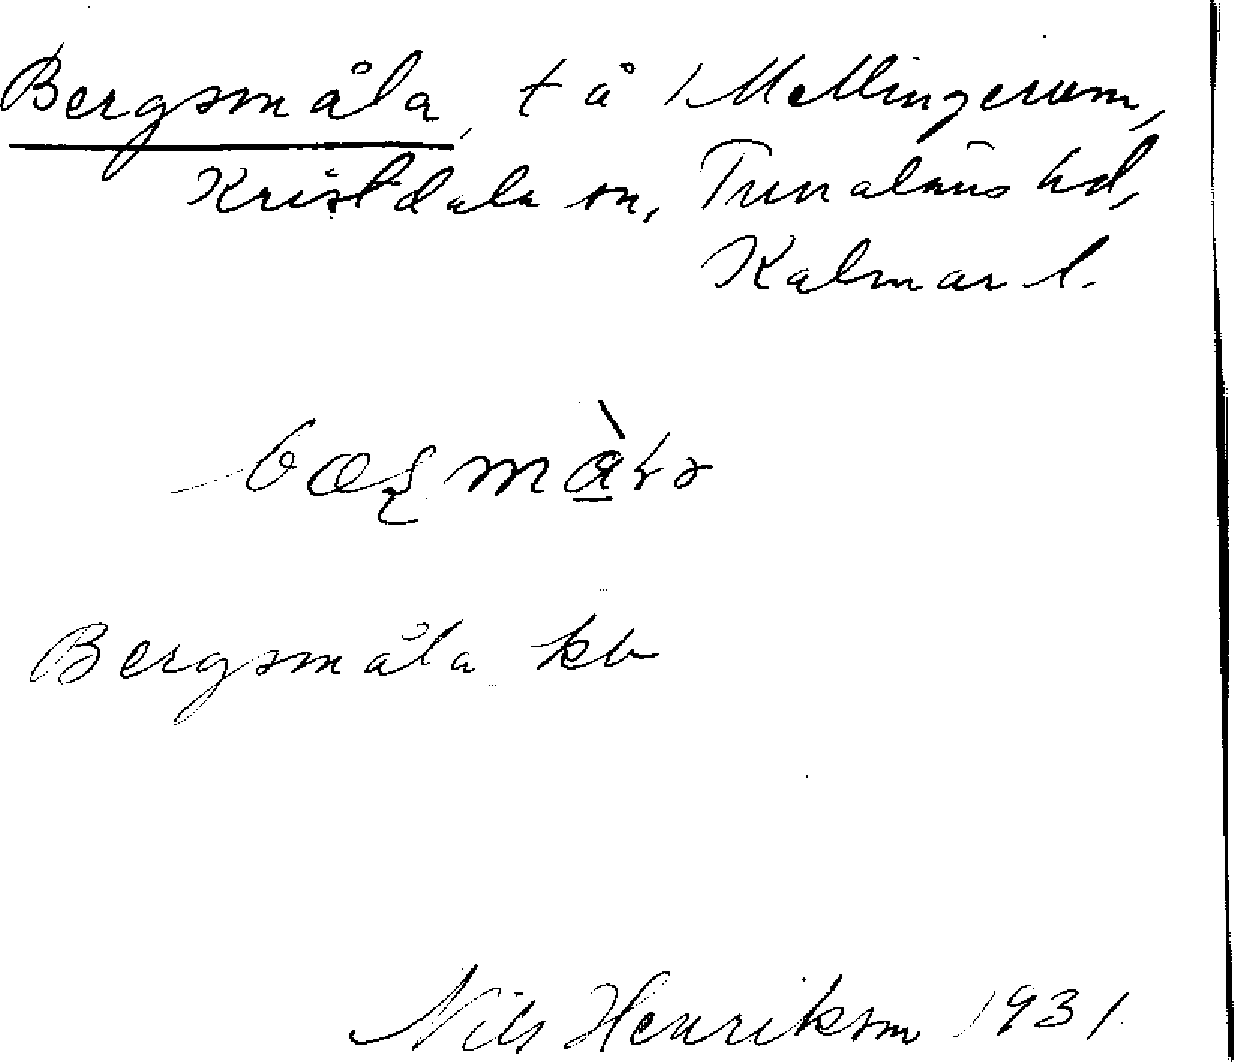 Bergsmåla, t å Mellingerum,
Kristdala sn, Tunaläns hd,
Kalmar l.
Bergsmåla kb
Nils Henrikson 1931.